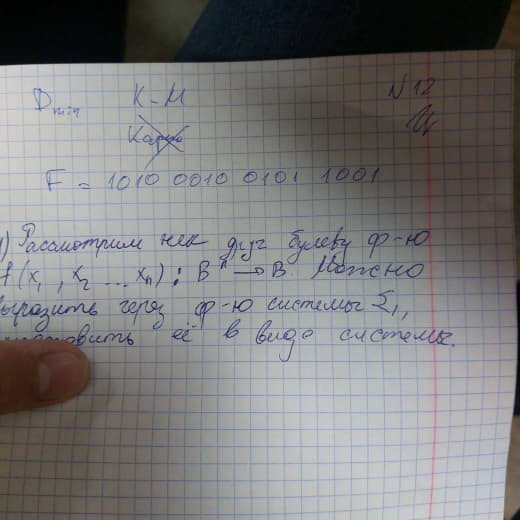 D min K-М N12
Карно
F = 1010 0010 0101 1001
1) Рассмотрим нек друг булеву ф-ю
f(x₁, x₂ ... xₙ) : Bⁿ → B Можно
выразить через ф-ю системы Σ₁,
её в виде системы.